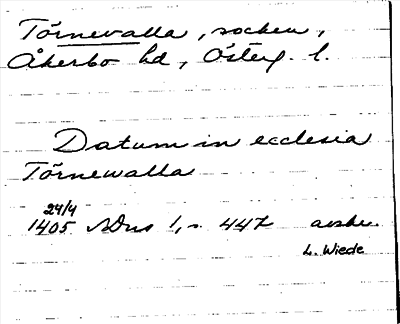 Törnevalla, socken,
Åkerbo hd, Österg. l.
Datum in ecclesia
Törnewalla
24/4
1405 1, s. 447 avskr.
L. Wiede